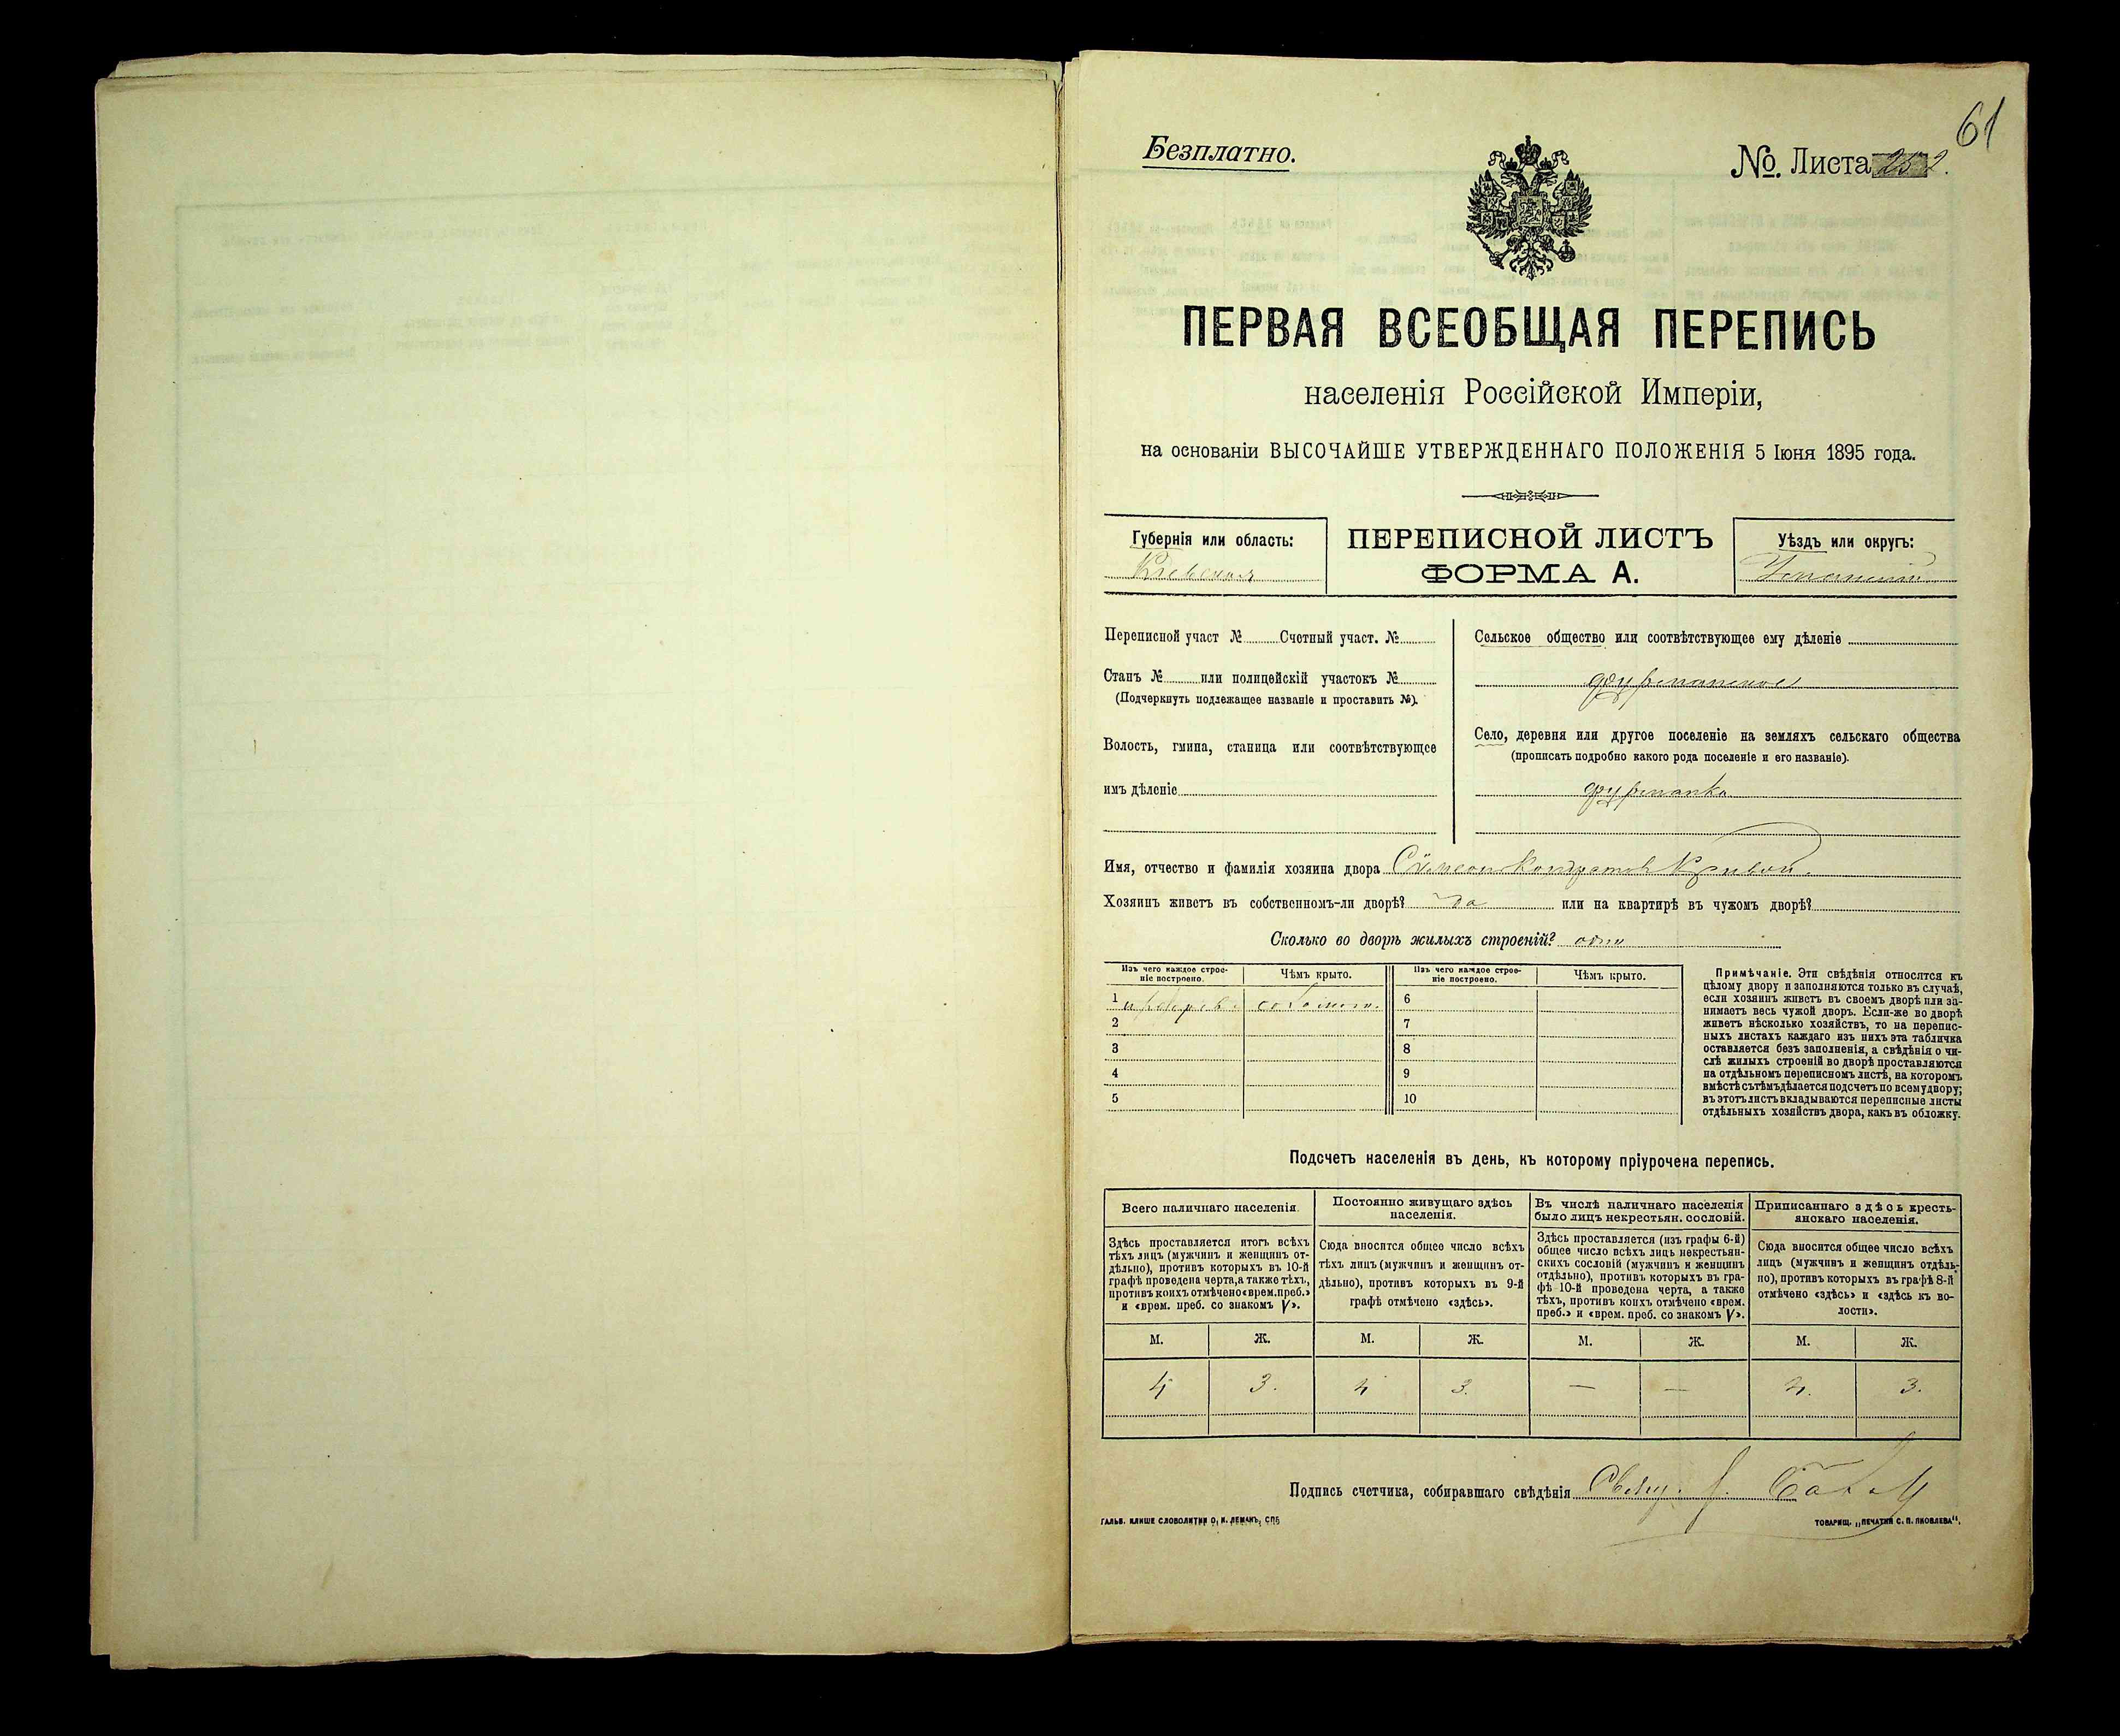 61
Безплатно.
№. Листа 252.
ПЕРВАЯ ВСЕОБЩАЯ ПЕРЕПИСЬ
населенія Россійской Имперіи,
на основаніи ВЫСОЧАЙШЕ УТВЕРЖДЕННАГО ПОЛОЖЕНІЯ 5 Іюня 1895 года.
Губернія или область:
Кіевская
ПЕРЕПИСНОЙ ЛИСТЪ
ФОРМА А.
Уѣздъ или округъ:
Уманскій
Переписной участ № Счетный участ. №
Станъ № или полицейскій участокъ №
(Подчеркнуть подлежащее названіе и проставить №).
Волость, гмина, станица или соотвѣтствующее
имъ дѣленіе
Сельское общество или соотвѣтствующее ему дѣленіе
фурманское
Село, деревня или другое поселеніе на земляхъ сельскаго общества
(прописать подробно какого рода поселеніе и его названіе).
фурманка
Имя, отчество и фамилія хозяина двора Симеон Кондратов Кривой.
Хозяинъ живетъ въ собственномъ-ли дворѣ? да или на квартирѣ въ чужомъ дворѣ?
Сколько во дворѣ жилыхъ строеній? один
Изъ чего каждое строе-
ніе построено.
Чѣмъ крыто.
Изъ чего каждое строе-
ніе построено.
Чѣмъ крыто.
1 солом. 6
2 7
3 8
4 9
5 10
Примѣчаніе. Эти свѣдѣнія относятся къ
цѣлому двору и заполняются только въ случаѣ,
если хозяинъ живетъ въ своемъ дворѣ или за-
нимаетъ весь чужой дворъ. Если-же во дворѣ
живетъ нѣсколько хозяйствъ, то на перепис-
ныхъ листахъ каждаго изъ нихъ эта табличка
оставляется безъ заполненія, а свѣдѣнія о чи-
слѣ жилыхъ строеній во дворѣ проставляются
на отдѣльномъ переписномъ листѣ, на которомъ
вмѣстѣ съ тѣмъ дѣлается подсчетъ по всему двору;
въ этотъ листъ вкладываются переписные листы
отдѣльныхъ хозяйствъ двора, какъ въ обложку.
Подсчетъ населенія въ день, къ которому пріурочена перепись.
Всего наличнаго населенія.
Здѣсь проставляется итогъ всѣхъ
тѣхъ лицъ (мужчинъ и женщинъ от-
дѣльно), противъ которыхъ въ 10-й
графѣ проведена черта, а также тѣхъ,
противъ коихъ отмѣчено «врем. преб.»
и «врем. преб. со знакомъ V».
Постоянно живущаго здѣсь
населенія.
Сюда вносится общее число всѣхъ
тѣхъ лицъ (мужчинъ и женщинъ от-
дѣльно), противъ которыхъ въ 9-й
графѣ отмѣчено «здѣсь».
Въ числѣ наличнаго населенія
было лицъ некрестьян. сословій.
Здѣсь проставляется (изъ графы 6-й)
общее число всѣхъ лицъ некрестьян-
скихъ сословій (мужчинъ и женщинъ
отдѣльно), противъ которыхъ въ гра-
фѣ 10-й проведена черта, а также
тѣхъ, противъ коихъ отмѣчено «врем.
преб.» и «врем. преб. со знакомъ V».
Приписаннаго здѣсь кресть-
янскаго населенія.
Сюда вносится общее число всѣхъ
лицъ (мужчинъ и женщинъ отдѣль-
но), противъ которыхъ въ графѣ 8-й
отмѣчено «здѣсь» и «здѣсь къ во-
лости».
М. Ж. М. Ж. М. Ж. М. Ж.
4 3. 4 3. — — 4. 3.
Подпись счетчика, собиравшаго свѣдѣнія Свящ.
ГАЛЬВ. КЛИШЕ СЛОВОЛИТНИ О. И. ЛЕМАНЪ, СПБ
ТОВАРИЩ. „ПЕЧАТНИ С. П. ЯКОВЛЕВА".